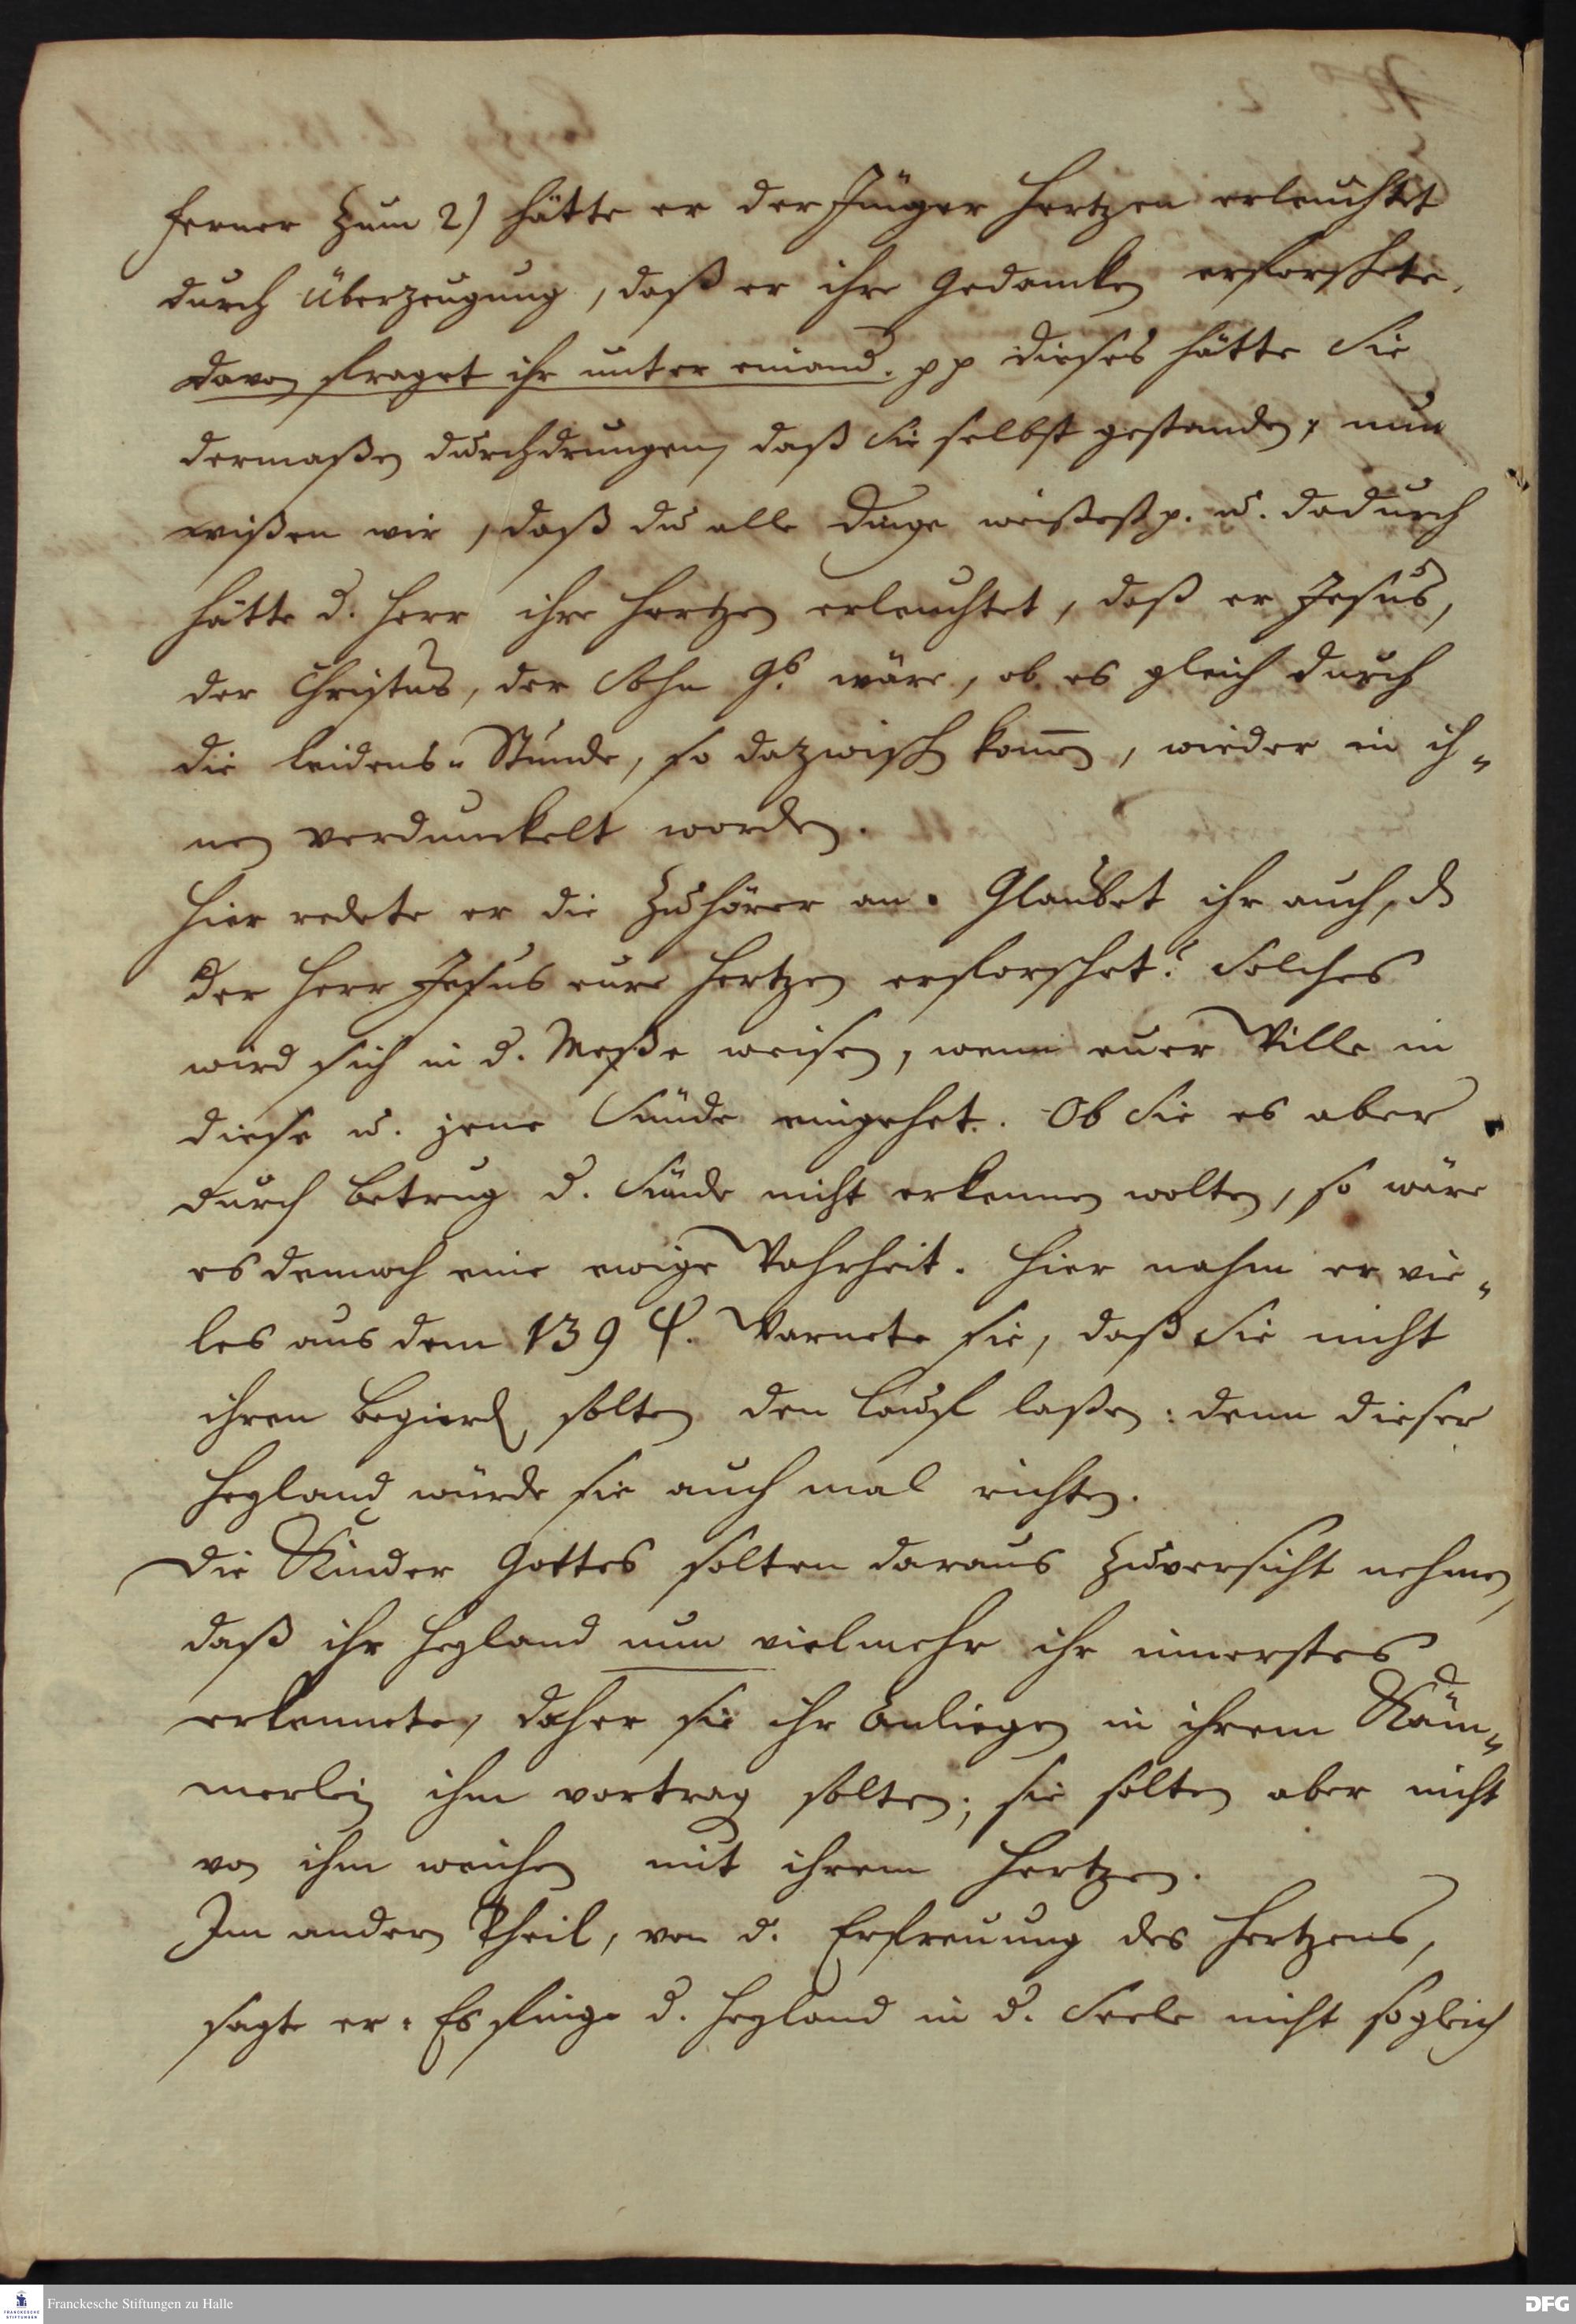 ferner Zum 2) hätte er der Jünger Hertzen erleuchtet
durch Überzeugung, daß er ihre Gedancken erforschete.
Davon fraget ihr unter einand. pp dieses hätte Sie
dermaßen durchdrungen, daß Sie selbst gestanden, nun
wißen wir, daß du alle Dinge weißest p. u. dadurch
hätte d. Herr ihre Hertzen erleuchtet, daß er Jesus,
der Christus, der Sohn Gs. wäre, ob es gleich durch
die Leidens-Stunde, so dazwisch komen, wieder in ih-
nen verdunckelt worden.
Hier redete er die Zuhörer an. Glaubet ihr auch, d
der Herr Jesus eure Hertzen erforschet? Solches
wird sich in d. Meße weisen, wenn euer Wille in
diese u. jene Sünde eingehet. Ob Sie es aber
durch Betrug d. Sünde nicht erkennen wolten, so wäre
es dennoch eine ewige Wahrheit. Hier nahm er vie-
les aus dem 139 ψ. Warnete sie, daß Sie nicht
ihren Begierd solten den Lauff laßen: denn dieser
Heyland würde sie auch mal richten.
Die Kinder Gottes solten daraus Zuversicht nehmen,
daß ihr Heyland nun vielmehr ihr innerstes
erkennete, daher sie ihr Anliegen in ihrem Käm-
merlein ihm vortrag solten; sie solten aber nicht
von ihm weichen mit ihrem Hertzen.
Im andern Theil, von d. Erfreuung des Hertzens,
sagte er. Es finge d. Heyland in d. Seele nicht sogleich
Franckesche Stiftungen zu Halle
DFG